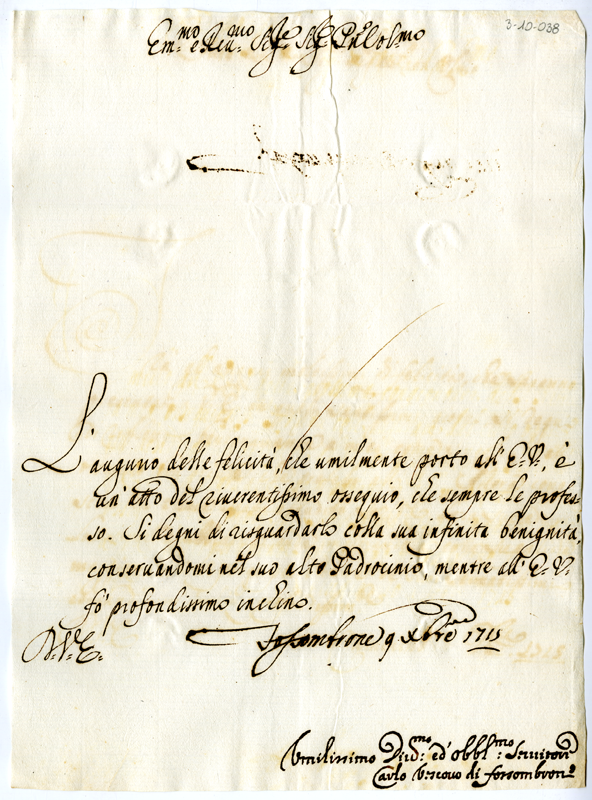 3-10-038
Em.mo e Reu.mo Sig.re Sig.re P̃ne Col.mo
L'augurio delle felicità, che umilmente porto all'E. V., è
un'atto del riuerentissimo ossequio, che sempre le profes-
so. Si degni di risguardarlo colla sua infinita benignità,
conseruandomi nel suo alto Padrocinio, mentre all'E. V.
fò profondissimo inchino.
Fossombrone 9 Xbre 1715
D. V. E.
Vmilissimo Diu.mo ed obbl.mo Seruitore
Carlo Vescouo di Fossombrone